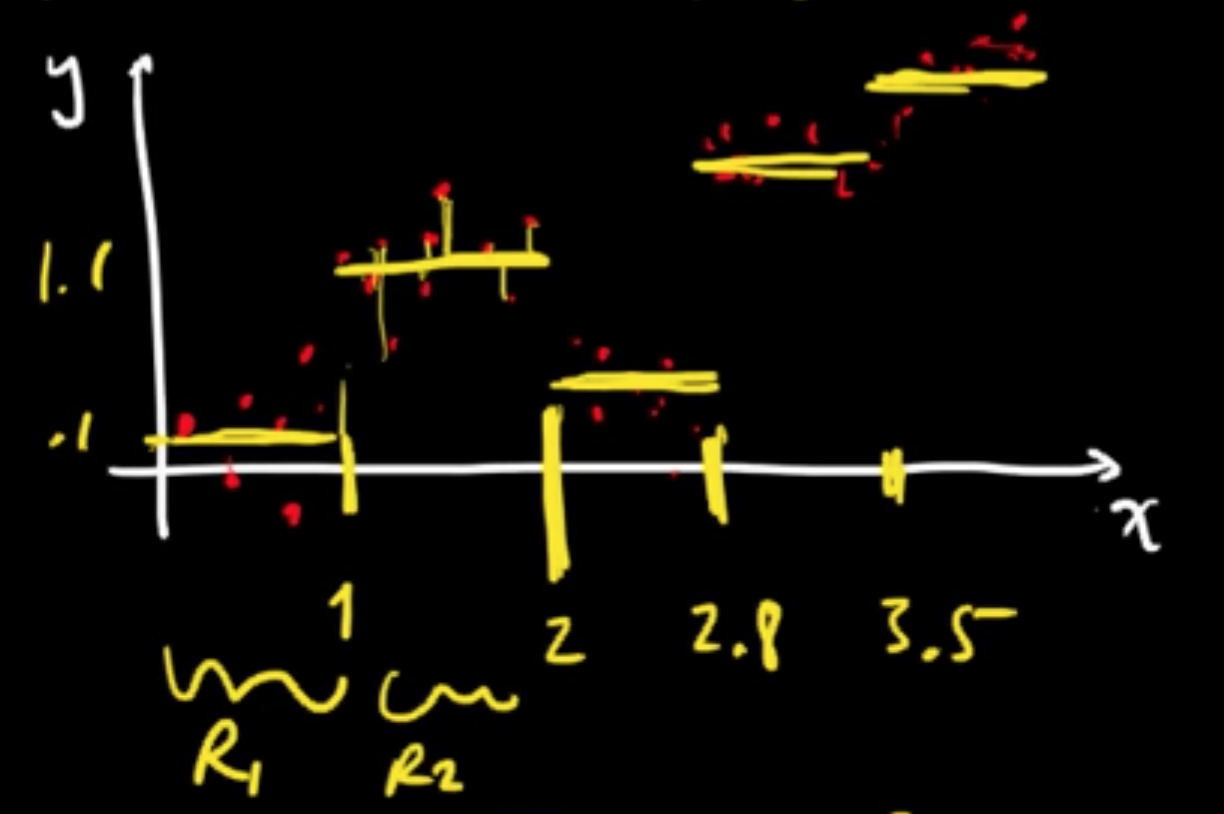 y
1.1
.1
x
1 2 2.8 3.5
R1 R2